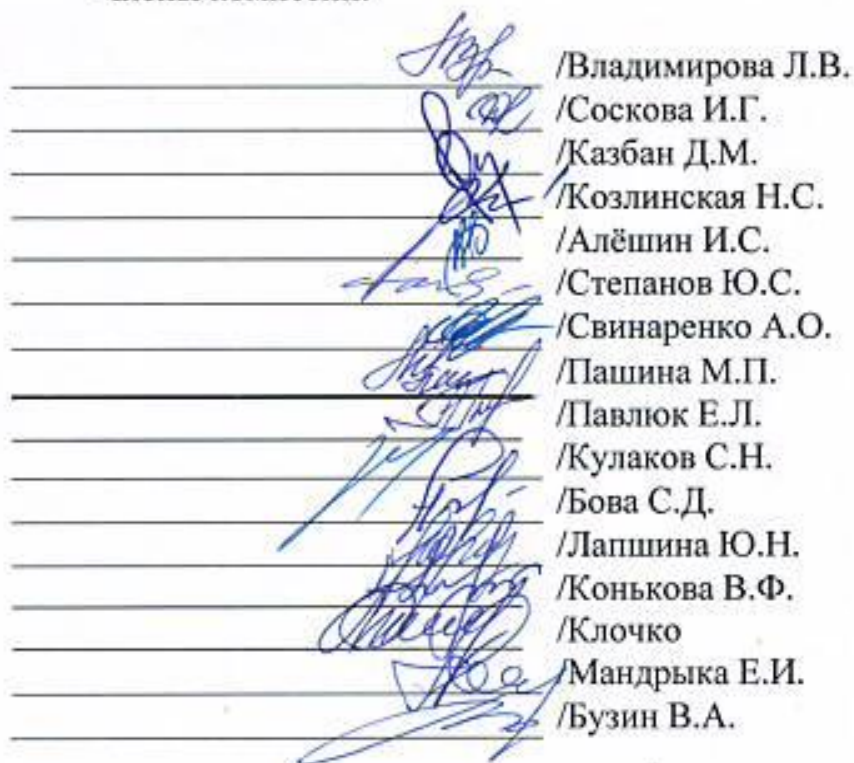 /Владимирова Л.В.
/Соскова И.Г.
/Казбан Д.М.
/Козлинская Н.С.
/Алёшин И.С.
/Степанов Ю.С.
/Свинаренко А.О.
/Пашина М.П.
/Павлюк Е.Л.
/Кулаков С.Н.
/Бова С.Д.
/Лапшина Ю.Н.
/Конькова В.Ф.
/Клочко
/Мандрыка Е.И.
/Бузин В.А.